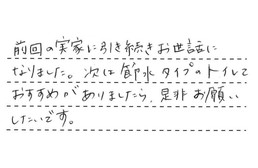 前回の実家に引き続きお世話に
なりました。次は節水タイプのトイレで
おすすめがありましたら、是非お願い
したいです。